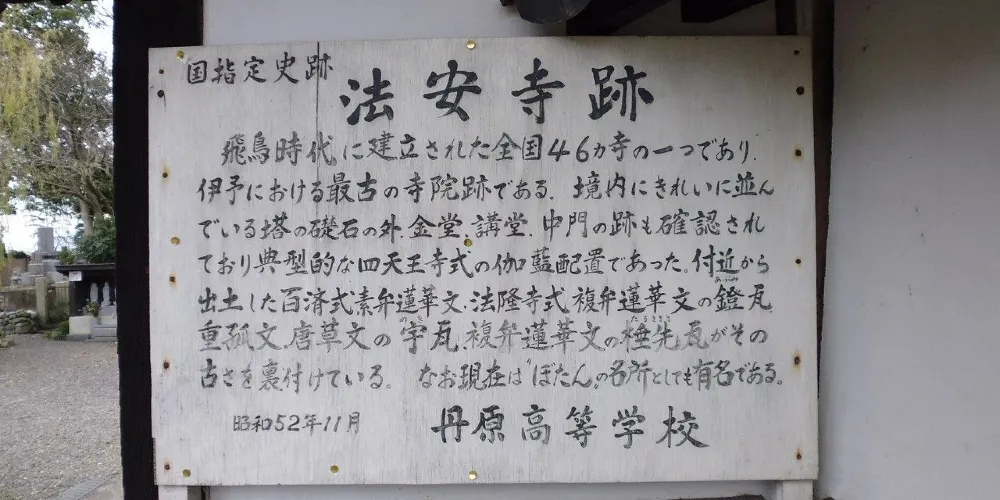 国指定史跡
法安寺跡
飛鳥時代に建立された全国46カ寺の一つであり.
伊予における最古の寺院跡である. 境内にきれいに並ん
でいる塔の礎石の外.金堂.講堂.中門の跡も確認され
ており典型的な四天王寺式の伽藍配置であった。付近から
出土した百済式素弁蓮華文.法隆寺式複弁蓮華文の鐙瓦
重孤文.唐草文の宇瓦.複弁蓮華文の棰先瓦がその
古さを裏付けている。 なお現在は"ぼたん"の名所としても有名である。
昭和52年11月
丹原高等学校